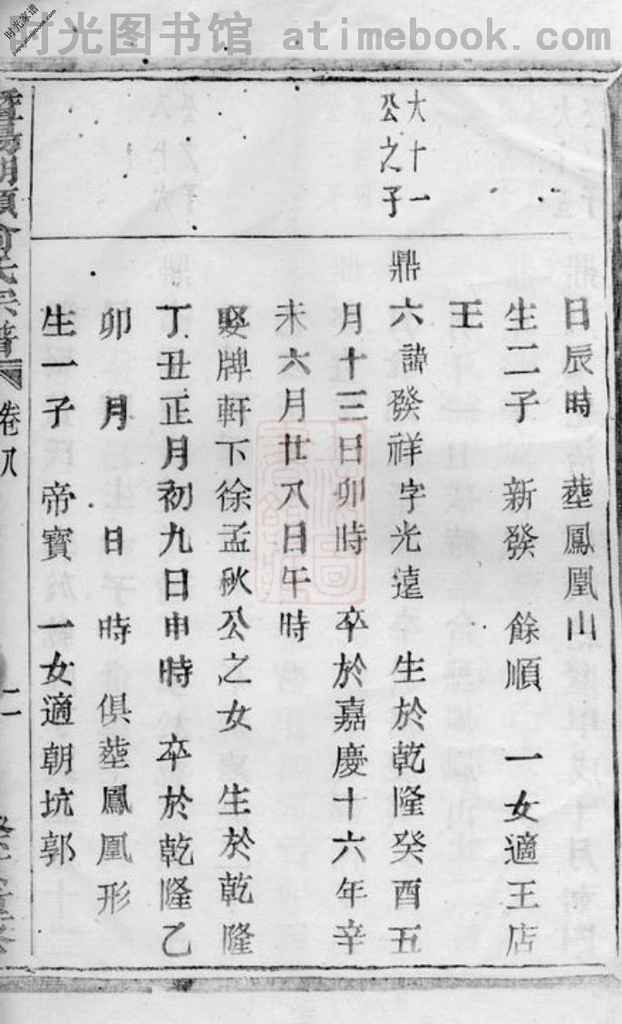 时光图书馆 atimebook.com
时光家谱
大十一
公之子
日辰時 塟鳳凰山
生二子 新發 餘順 一女適王店
王
鼎六 諱發祥字光遠 生於乾隆癸酉五
月十三日卯時 卒於嘉慶十六年辛
未六月廿八日午時
娶牌軒下徐孟秋公之女 生於乾隆
丁丑正月初九日申時 卒於乾隆乙
卯 月 日 時 俱塟鳳凰形
生一子 帝寳 一女適朝坑郭
宗譜 卷八 二